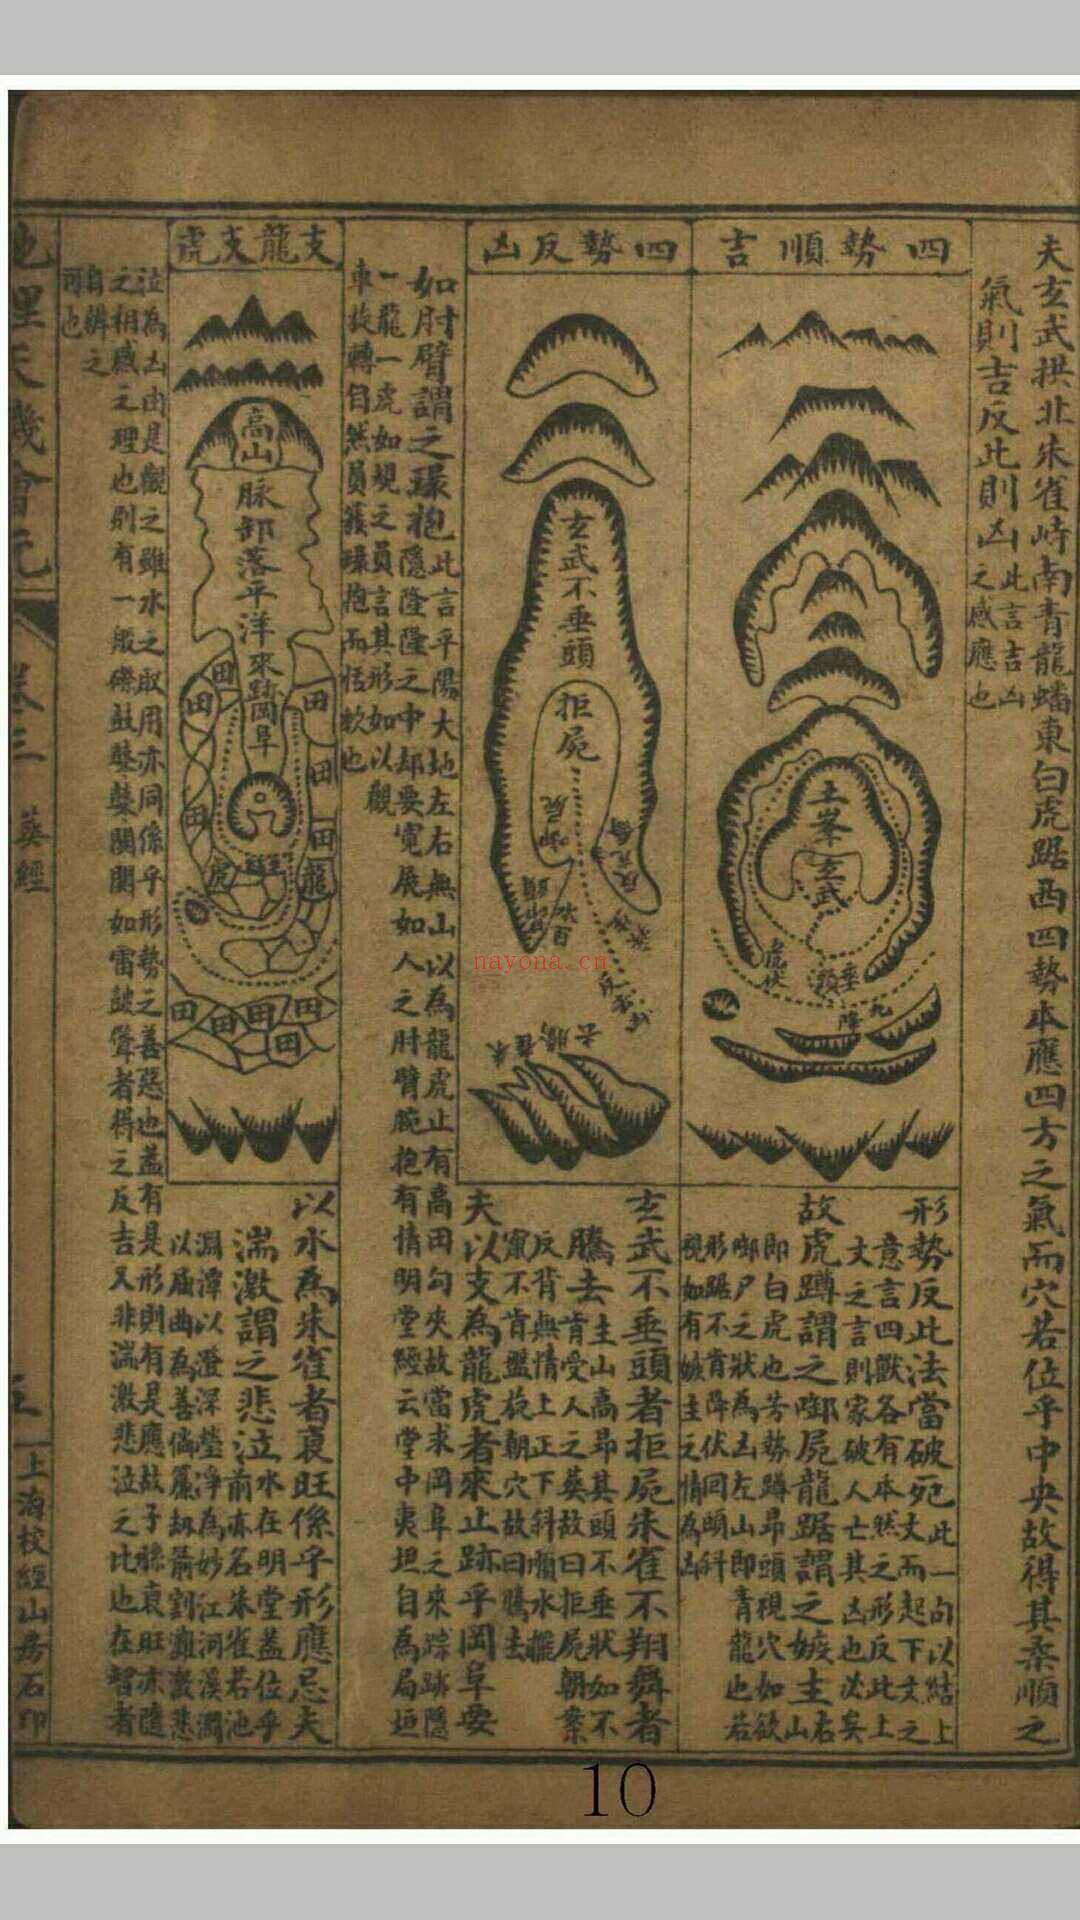 夫玄武拱北朱雀峙南青龍蟠東白虎踞西四勢本應四方之氣而穴若位乎中央故得其柔順之
氣則吉反此則凶此言吉凶
之感應也
四勢順吉
土峯玄武
垂頭
虎伏
九降
形勢反此法當破死此一句以結上
文而起下文之
意言四獸各有本然之形反此上
文之言則家破人亡其凶也必矣
故虎蹲謂之啣屍龍踞謂之嫉主右山
即白虎也芳勢蹲昂頭視穴如欲
啣尸之狀為凶左山即青龍也若
形踞不肯降伏回頭斜
視如有嫉主之情為凶
四勢反凶
玄武不垂頭
拒屍
啣屍
玄武不垂頭者拒屍朱雀不翔舞者
騰去主山高昂其頭不垂狀如不
肯受人之葬故曰拒屍朝案
反背無情上正下斜順水擺
竄不肯盤旋朝穴故曰騰去
夫以支為龍虎者來止跡乎岡阜要
如肘臂謂之環抱此言平陽大地左右無山以為龍虎止有高田勾夾故當求岡阜之來踪跡隱
隱隆隆之中却要寬展如人之肘臂腕抱有情明堂經云堂中夷坦自為局垣
一龍一虎如規之員言其形如以觀
車故轉自然員淨環抱而恬軟也
支龍支虎
高山
脉卸落平洋來蹟岡阜
田
田
田
田
田
田
虎
龍
田
田
田
田
田
以水為朱雀者衰旺係乎形應忌夫
湍激謂之悲泣水在明堂蓋位乎
前亦名朱雀若池
淵潭以澄深瑩淨為妙江河溪澗
以屈曲為善倘廉劫箭割灘激悲
泣為凶由是觀之雖水之取用亦同係乎形勢之善惡也蓋有是形則有是應故子孫衰旺亦隨
之相感之理也則有一般礫鼓鼕鼕關關如雷皷聲者得之反吉又非湍激悲泣之比也在智者
自辨之
可也
地理天機會元
卷三
葬經
五
上海校經山房石印
nayona.cn
10